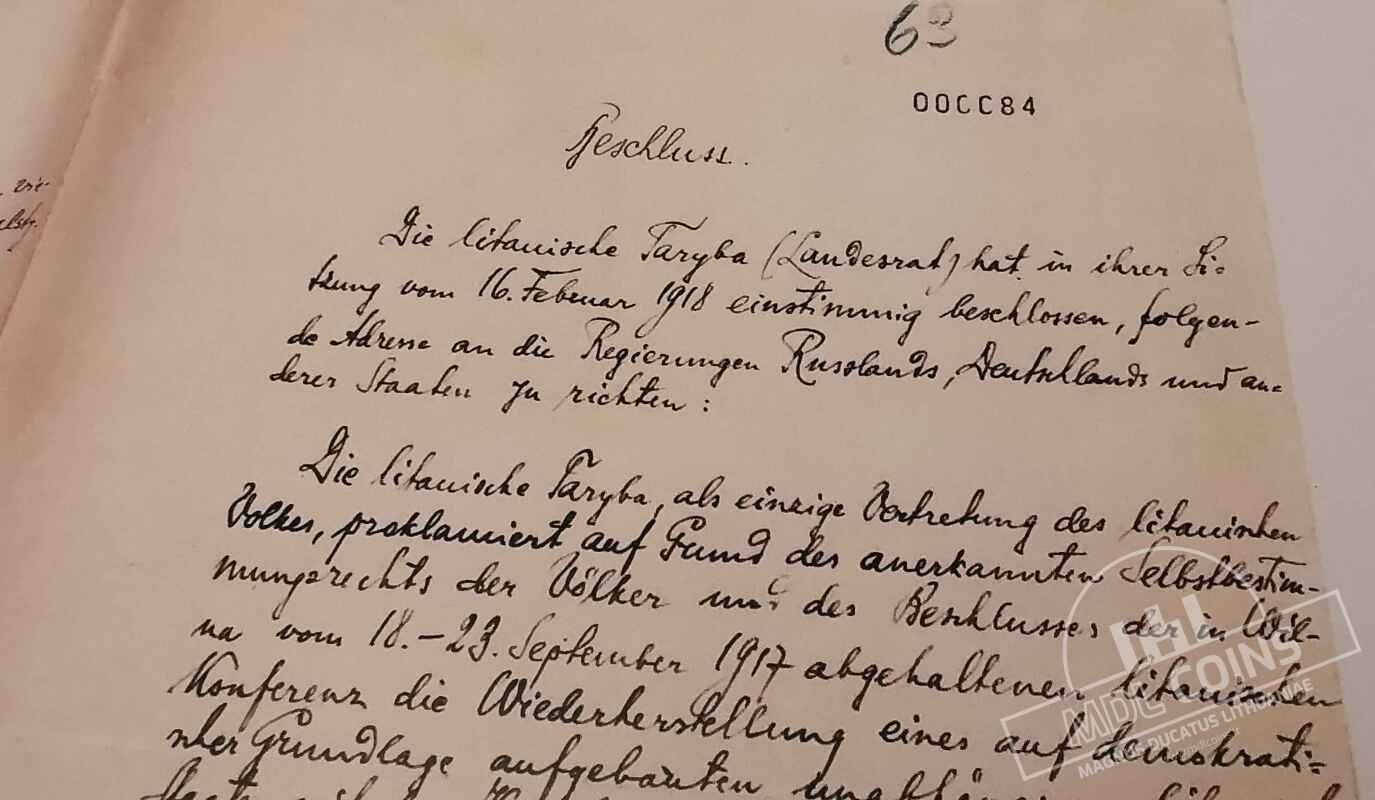 63
OOCC84
Beschluss.
Die litauische Taryba (Landesrat) hat in ihrer Si-
tzung vom 16. Februar 1918 einstimmig beschlossen, folgen-
de Adresse an die Regierungen Russlands, Deutschlands und an-
derer Staaten zu richten:
Die litauische Taryba, als einzige Vertretung des litauischen
Volkes, proklamiert auf Grund des anerkannten Selbstbestim-
mungsrechts der Völker und des Beschlusses der in Wil-
na vom 18.-23. September 1917 abgehaltenen litauischen
Konferenz die Wiederherstellung eines auf demokrati-
scher Grundlage aufgebauten
MDL COINS
MAGNUS DUCATUS LITHUANIAE